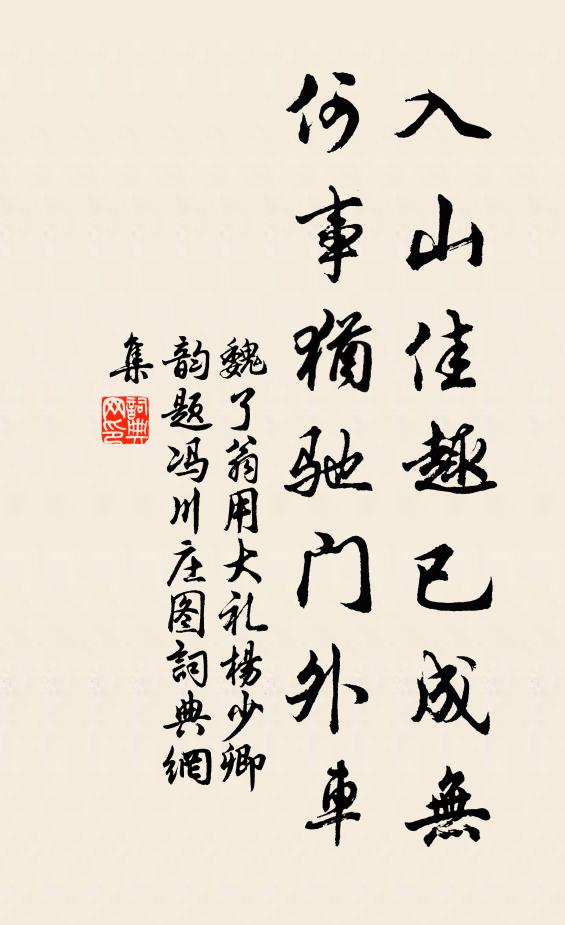 入山佳趣已成無
何事猶驰门外車
魏了翁用大礼楊少卿
韵题冯川庄图詞典網
集
詞典
网印